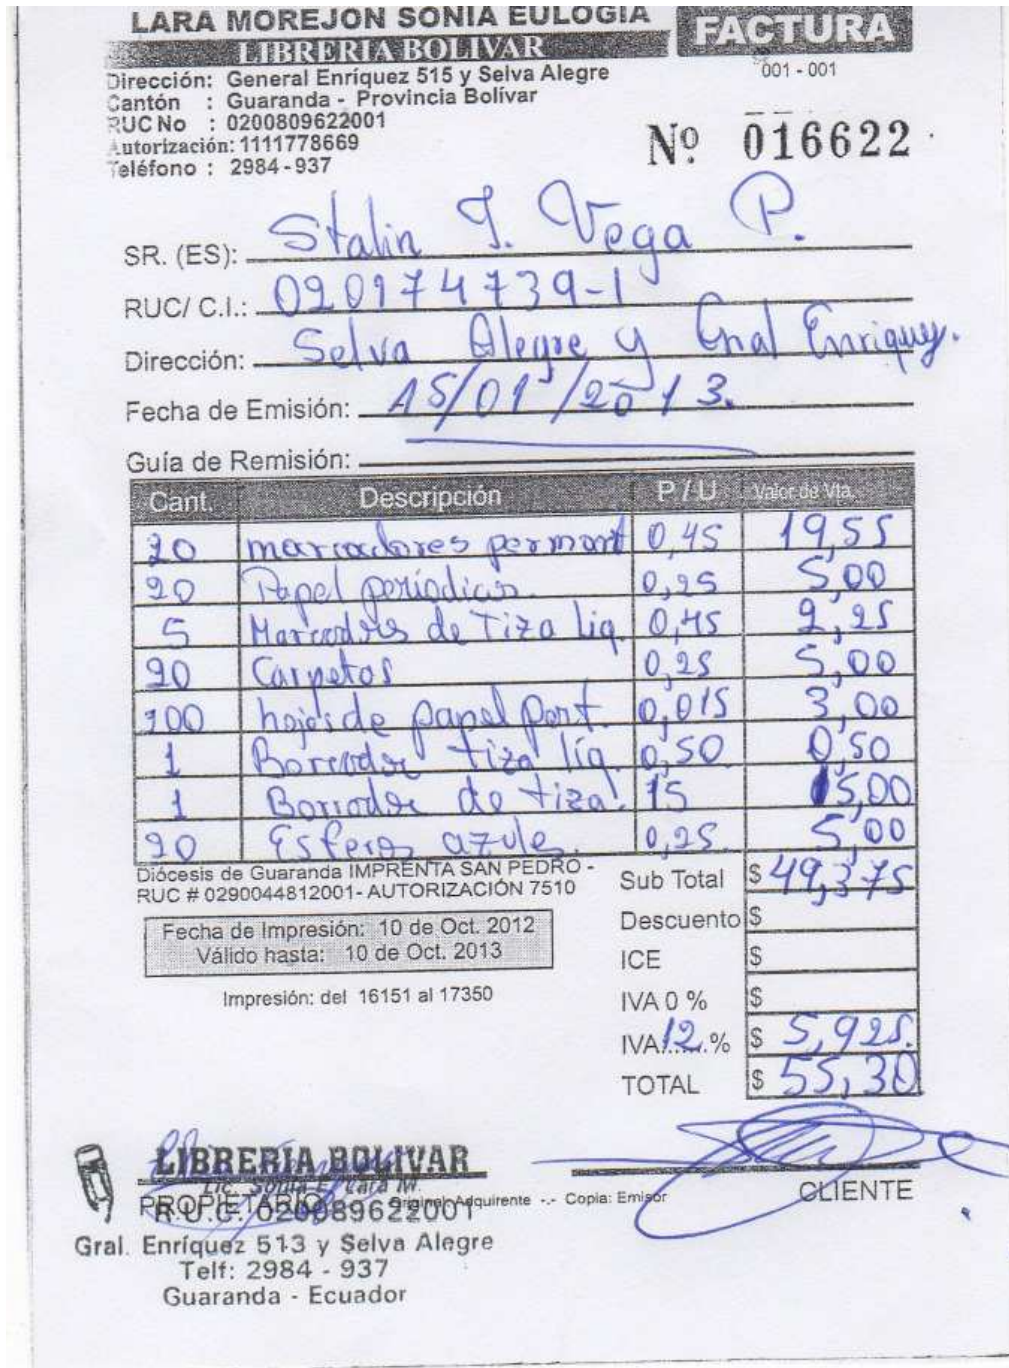 LARA MOREJON SONIA EULOGIA
LIBRERIA BOLIVAR
FACTURA
001 - 001
Dirección: General Enríquez 515 y Selva Alegre
Cantón : Guaranda - Provincia Bolívar
RUC No : 0200809622001
Autorización: 1111778669
Teléfono : 2984-937
Nº 016622
SR. (ES): Stalin J. Vega P.
RUC/ C.I.: 020174739-1
Dirección: Selva Alegre y Gnal Enriquez.
Fecha de Emisión: 15/01/2013.
Guía de Remisión:
Cant. Descripción P / U Valor de Vta.
20 marcadores permant 0,45 19,55
20 Papel periódicas 0,25 5,00
5 Marcadores de Tiza liq. 0,45 2,25
20 Carpetas 0,25 5,00
200 hojas de papel pont. 0,015 3,00
1 Borrador tiza líq. 0,50 0,50
1 Borrador de tiza. 15 15,00
20 Esferos azules. 0,25 5,00
Diócesis de Guaranda IMPRENTA SAN PEDRO -
RUC # 0290044812001- AUTORIZACIÓN 7510
Sub Total $ 49,375
Fecha de Impresión: 10 de Oct. 2012
Válido hasta: 10 de Oct. 2013
Descuento $
ICE $
Impresión: del 16151 al 17350
IVA 0 % $
IVA 12 % $ 5,925.
TOTAL $ 55,30
LIBRERIA BOLIVAR
Lic. Sonia E. Lara M.
PROPIETARIO Original: Adquirente -.- Copia: Emisor CLIENTE
R.U.C. 020089622001
Gral. Enríquez 513 y Selva Alegre
Telf: 2984 - 937
Guaranda - Ecuador